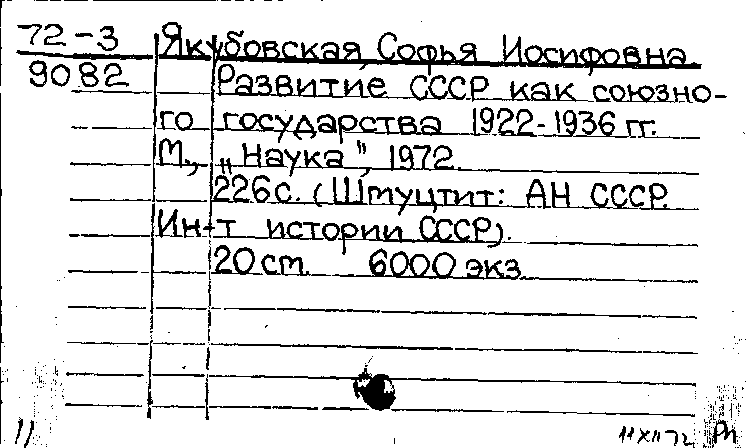 72-3 Якубовская, Софья Иосифовна.
9082 Развитие СССР как союзно-
го государства 1922-1936 гг.
М., „Наука", 1972.
226с. (Штуцтит: АН СССР.
Ин-т истории СССР).
20 ст. 6000 экз.
11 XII 72